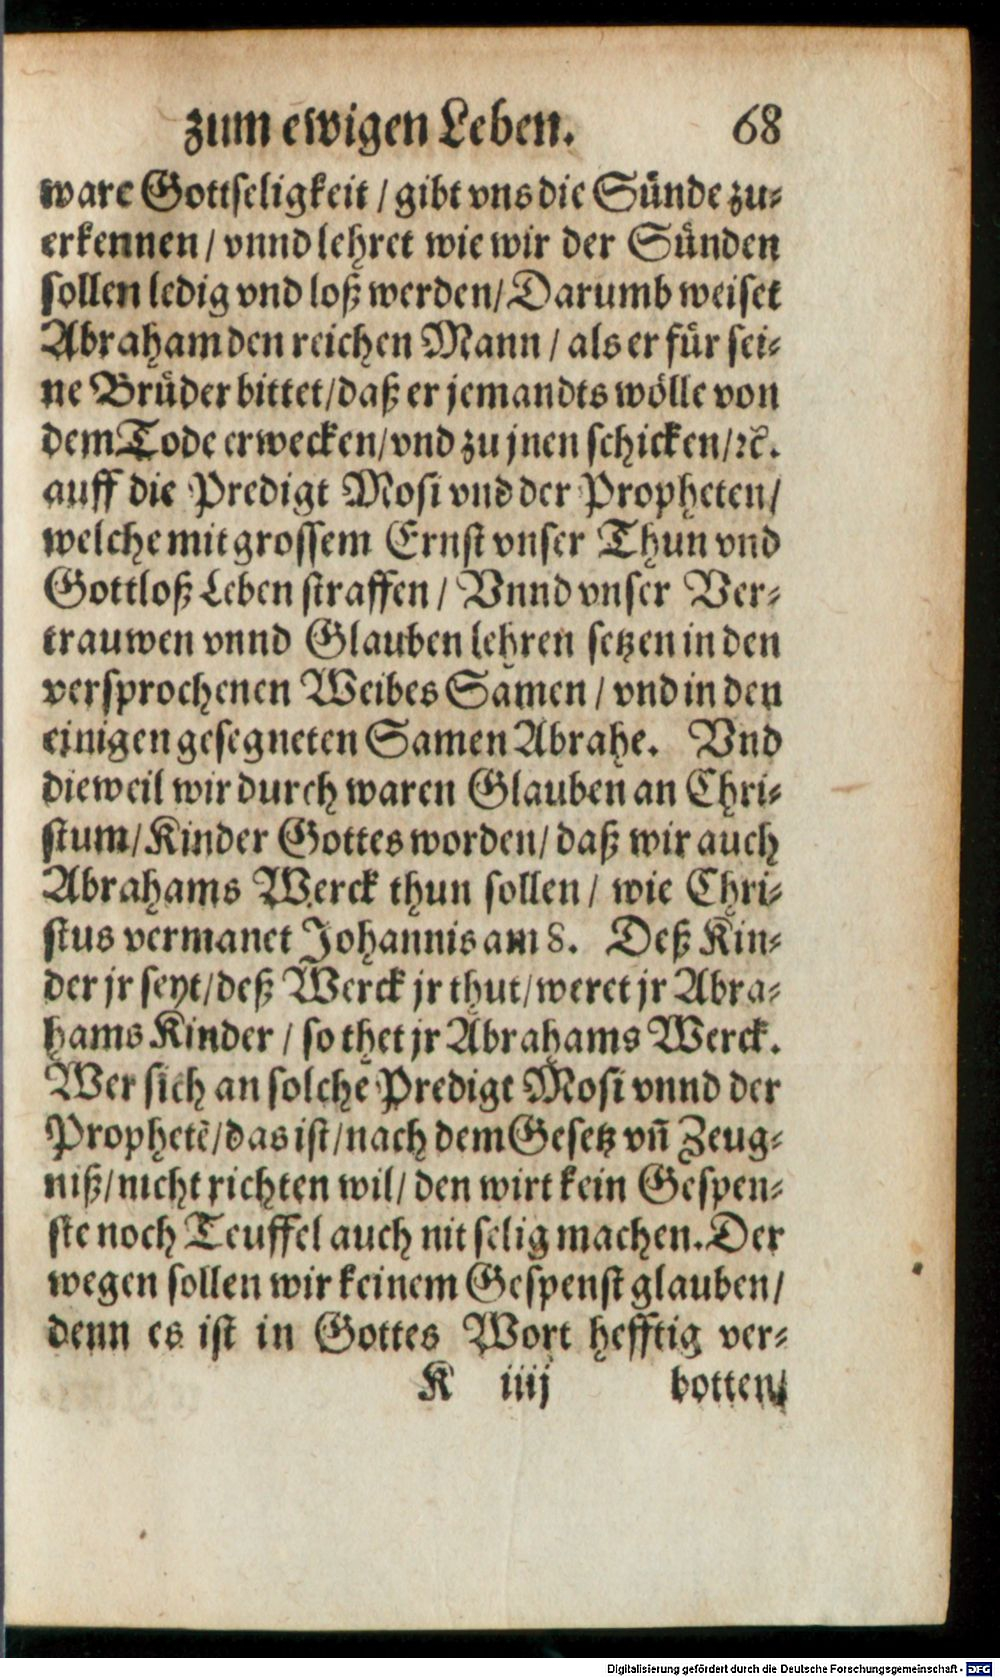 zum ewigen Leben. 68
ware Gottseligkeit / gibt vns die Sünde zu-
erkennen / vnnd lehret wie wir der Sünden
sollen ledig vnd loß werden / Darumb weiset
Abraham den reichen Mann / als er für sei-
ne Brüder bittet / daß er jemandts wölle von
dem Tode erwecken / vnd zu jnen schicken / ꝛc.
auff die Predigt Mosi vnd der Propheten /
welche mit grossem Ernst vnser Thun vnd
Gottloß Leben straffen / Vnnd vnser Ver-
trauwen vnnd Glauben lehren setzen in den
versprochenen Weibes Samen / vnd in den
einigen gesegneten Samen Abrahe. Vnd
dieweil wir durch waren Glauben an Chri-
stum / Kinder Gottes worden / daß wir auch
Abrahams Werck thun sollen / wie Chri-
stus vermanet Johannis am 8. Deß Kin-
der jr seyt / deß Werck jr thut / weret jr Abra-
hams Kinder / so thet jr Abrahams Werck.
Wer sich an solche Predigt Mosi vnnd der
Prophetē / das ist / nach dem Gesetz vñ Zeug-
niß / nicht richten wil / den wirt kein Gespen-
ste noch Teuffel auch nit selig machen. Der
wegen sollen wir keinem Gespenst glauben /
denn es ist in Gottes Wort hefftig ver-
K iiij botten /
Digitalisierung gefördert durch die Deutsche Forschungsgemeinschaft - DFG